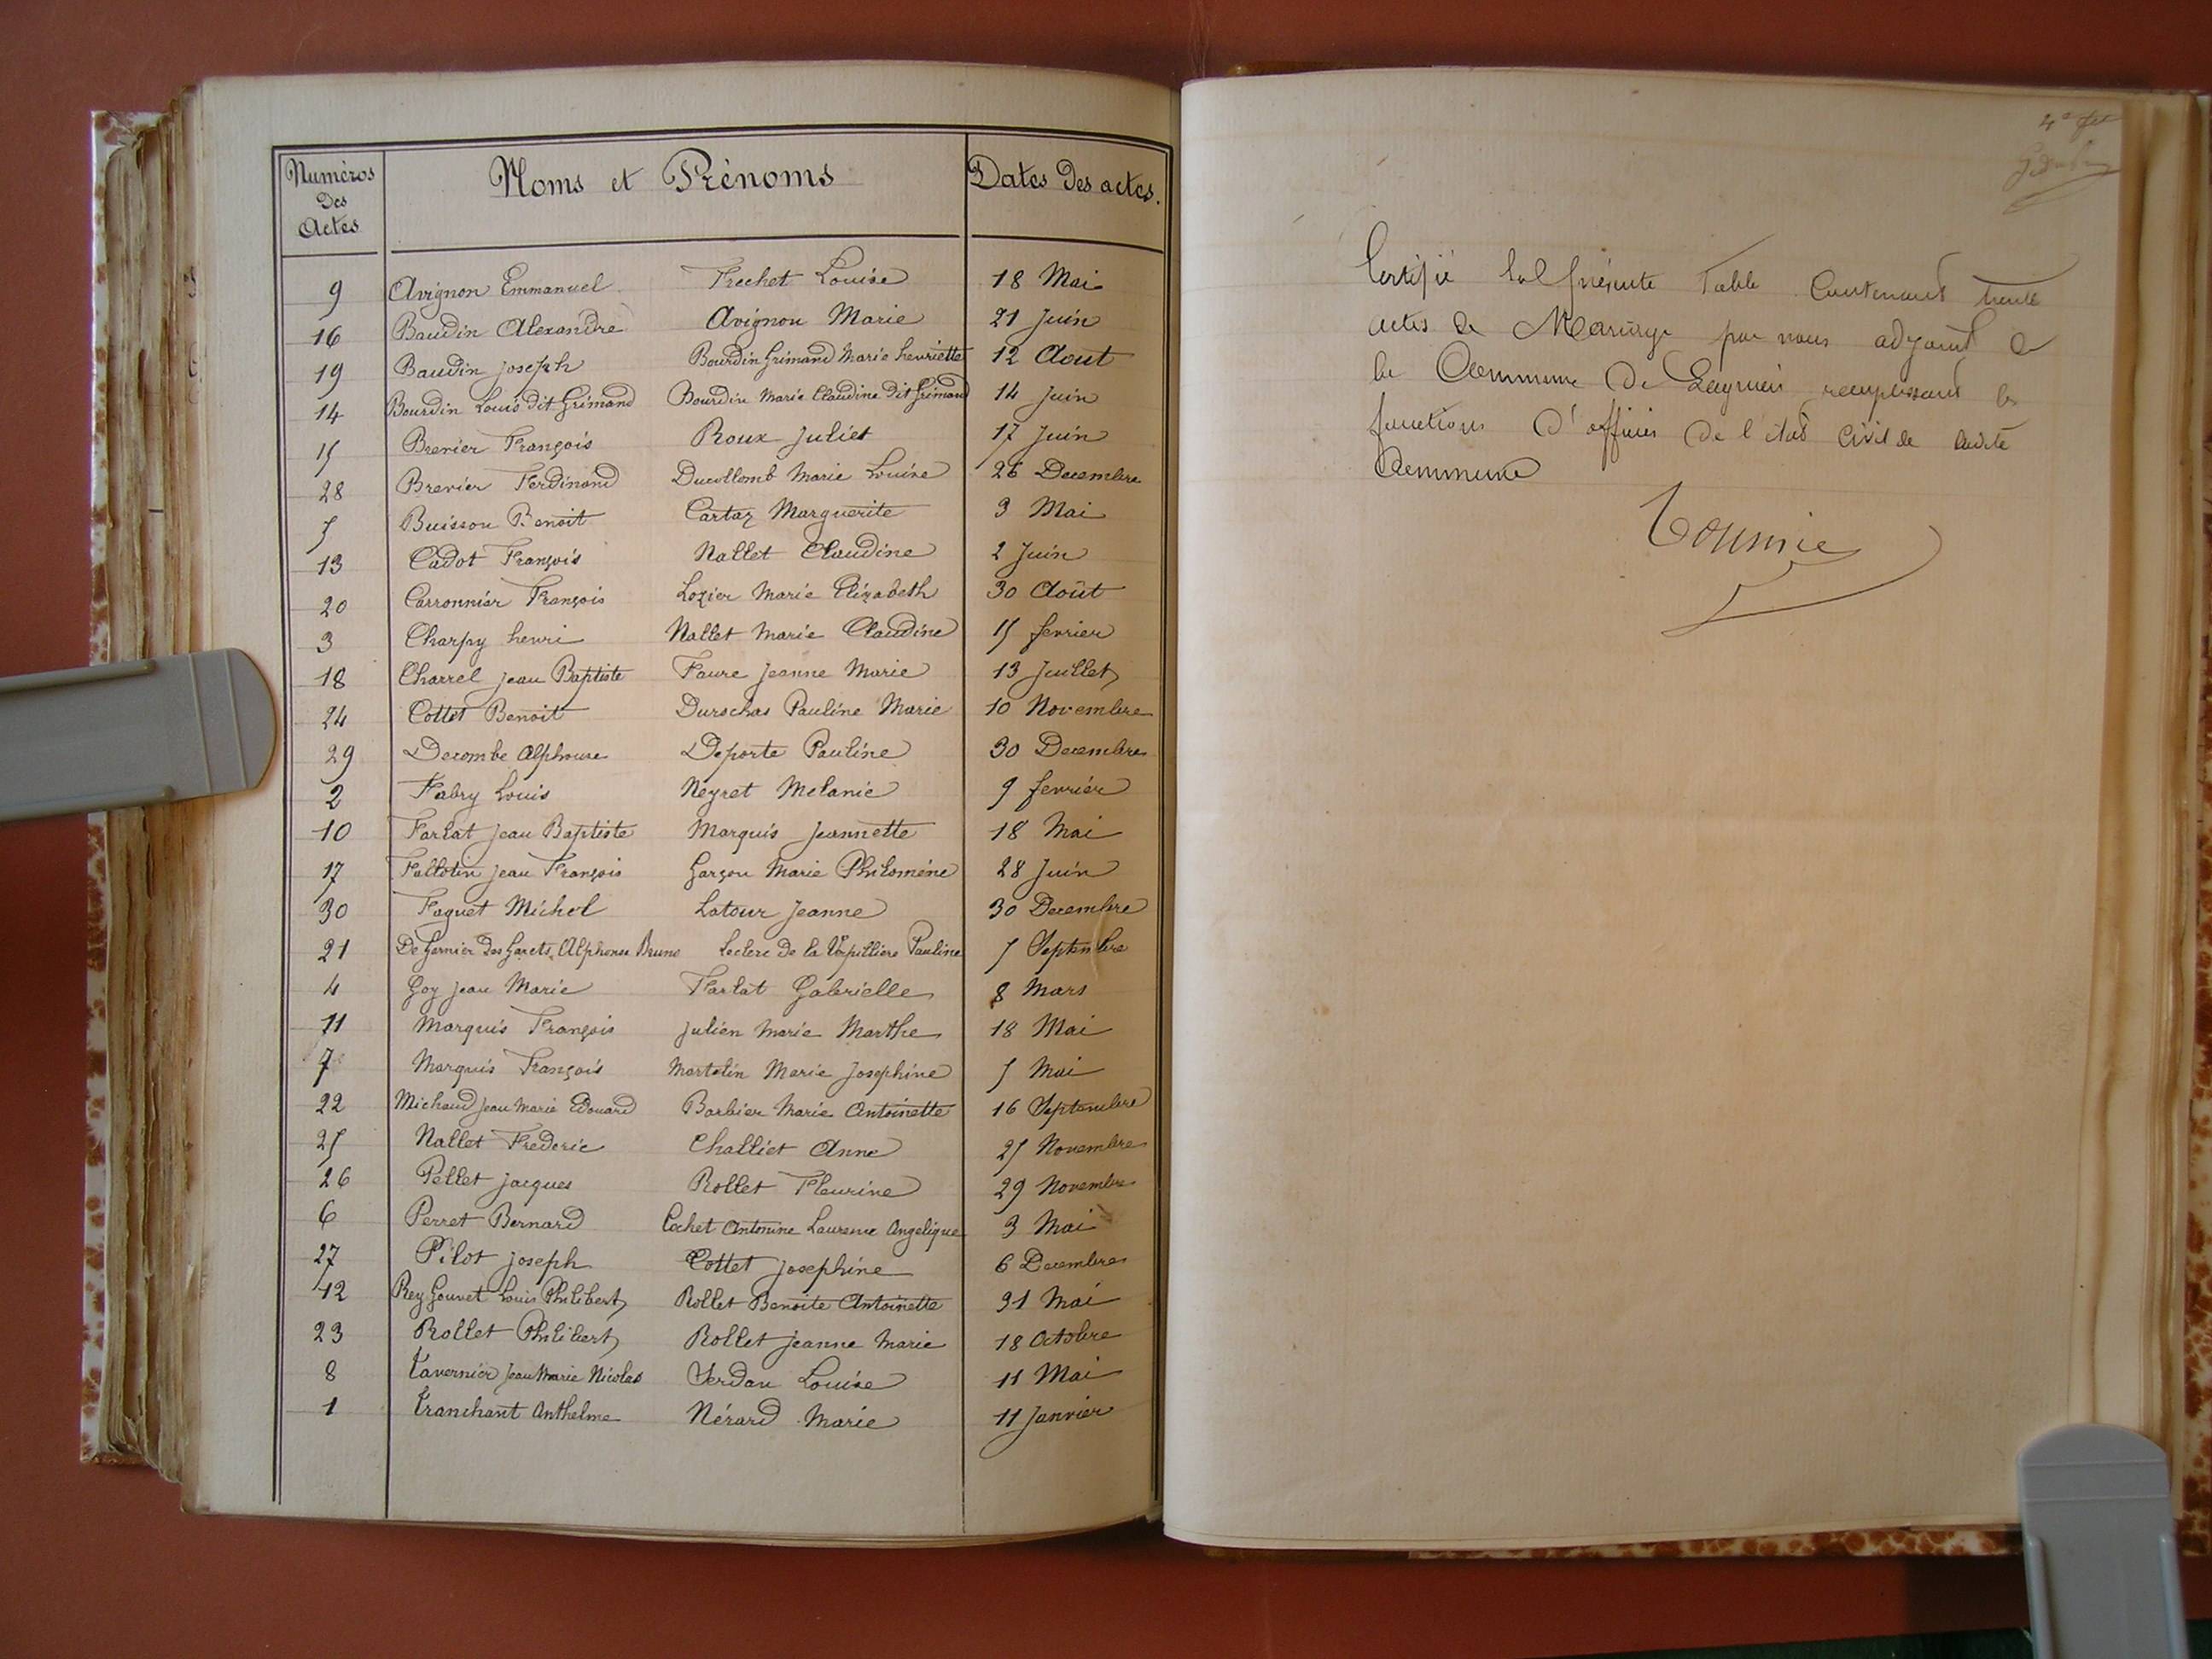 Numéros Des Actes
Noms et Prénoms
Dates Des actes.
9 Avignon Emmanuel Frechet Louise 18 Mai
16 Baudin Alexandre Avignon Marie 21 Juin
19 Baudin Joseph Bourdin Grimand Marie henriette 12 Aout
14 Bourdin Louis dit Grimand Bourdin Marie Claudine dit Grimand 14 Juin
15 Brevier François Roux Juliet 17 Juin
28 Brevier Ferdinand Ducollomb Marie Louise 26 Decembre
5 Buisson Benoit Cartaz Marguerite 3 Mai
13 Cadot François Nallet Claudine 2 Juin
20 Carronnier François Lozier Marie Elizabeth 30 Août
3 Charpy henri Nallet Marie Claudine 15 fevrier
18 Charrel Jean Baptiste Faure Jeanne Marie 13 Juillet
24 Cottet Benoit Durochas Pauline Marie 10 Novembre
29 Decombe Alphonse Deporte Pauline 30 Decembre
2 Fabry Louis Neyret Melanie 9 fevrier
10 Farlat Jean Baptiste Marquis Jeannette 18 Mai
17 Fallotin Jean François Garçon Marie Philomène 28 Juin
30 Faguet Michel Latour Jeanne 30 Decembre
21 De Garnier des Garets Alphonse Bruno Leclerc De la Verpilliere Pauline 5 Septembre
4 Goy Jean Marie Farlat Gabrielle 8 Mars
11 Marquis François Julien Marie Marthe 18 Mai
7 Marquis François Martelin Marie Josephine 5 Mai
22 Michaud Jean Marie Edouard Barbier Marie Antoinette 16 Septembre
25 Nallet Frederic Challiet Anne 25 Novembre
26 Pellet Jacques Rollet Fleurine 29 Novembre
6 Perret Bernard Cochet Antonine Laurence Angelique 3 Mai
27 Pilot Joseph Cottet Josephine 6 Decembre
12 Rey Gouvet Louis Philibert Rollet Benoite Antoinette 31 Mai
23 Rollet Philibert Rollet Jeanne Marie 18 Octobre
8 Tavernier Jean Marie Nicolas Verdan Louise 11 Mai
1 Tranchant Anthelme Nérard Marie 11 Janvier
Certifié la présente Table Contenant trente
actes de Mariage par nous adjoint de
la Commune de Lagnieu remplissant les
fonctions d'officier de l'état Civil de ladite
Commune